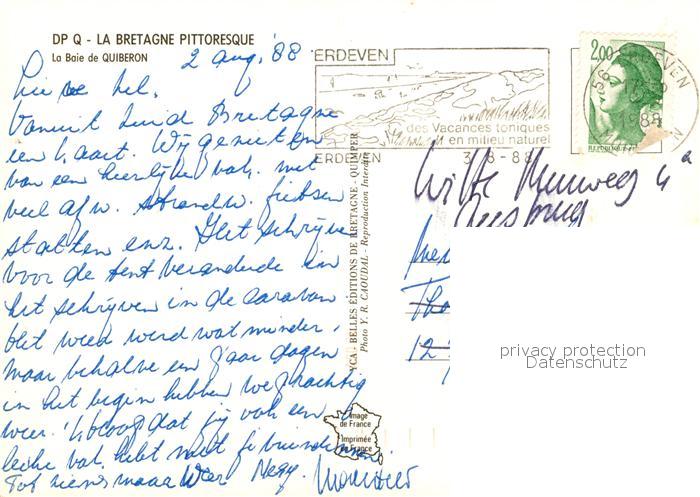 DP Q - LA BRETAGNE PITTORESQUE
La Baie de QUIBERON
2 aug. '88
Lieve
Vanuit Zuid Bretagne
een kaart. Wij genieten
van een heerlijke vak. met
veel afw. strandw. fietsen
stadten enz. Het schrijven
voor de tent veranderde in
het schrijven in de caravan
het weer werd wat minder,
maar behalve een paar dagen
in het begin hebben we prachtig
weer. 'k hoop dat jij ook een
leuke vak. hebt met je vriendinnen.
Tot ziens maar weer
ERDEVEN
des Vacances toniques
en milieu naturel
ERDEVEN 3-8-88
2,00
REPUBLIQUE
1988
YCA - BELLES ÉDITIONS DE BRETAGNE - QUIMPER
Photo Y. R. CAOUDAL - Reproduction Interdite
4a
12
Image
de France
Imprimée
en France
privacy protection
Datenschutz